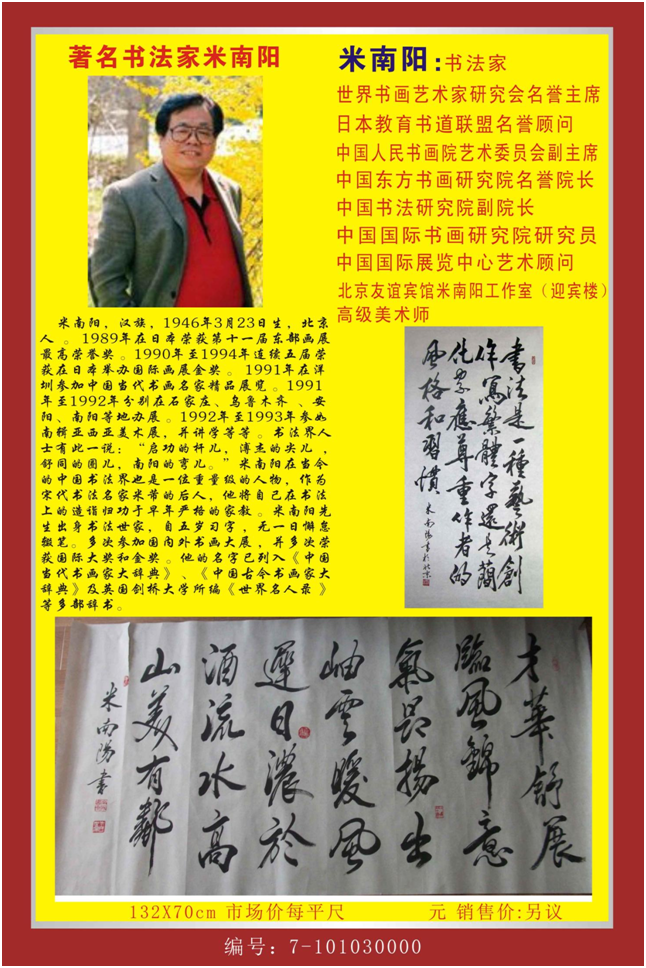 著名书法家米南阳
米南阳:书法家
世界书画艺术家研究会名誉主席
日本教育书道联盟名誉顾问
中国人民书画院艺术委员会副主席
中国东方书画研究院名誉院长
中国书法研究院副院长
中国国际书画研究院研究员
中国国际展览中心艺术顾问
北京友谊宾馆米南阳工作室（迎宾楼）
高级美术师
米南阳，汉族，1946年3月23日生，北京
人。1989年在日本荣获第十一届东部画展
最高荣誉奖。1990年至1994年连续五届荣
获在日本举办国际画展金奖。1991年在深
圳参加中国当代书画名家精品展览。1991
年至1992年分别在石家庄、乌鲁木齐、安
阳、南阳等地办展。1992年至1993年参加
南韩亚西亚美术展，并讲学等等。书法界人
士有此一说：“启功的杆儿，溥杰的尖儿，
舒同的圈儿，南阳的弯儿。”米南阳在当今
的中国书法界也是一位重量级的人物，作为
宋代书法名家米芾的后人，他将自己在书法
上的造诣归功于早年严格的家教。米南阳先
生出身书法世家，自五岁习字，无一日懈怠
辍笔。多次参加国内外书画大展，并多次荣
获国际大奖和金奖。他的名字已列入《中国
当代书画家大辞典》、《中国古今书画家大
辞典》及英国剑桥大学所编《世界名人录》
等多部辞书。
書法是一種藝術創
作寫繁體字還是簡
化字應尊重作者的
風格和習慣
米南陽書於北京
才華舒展
臨風錦意
氣昂揚出
岫雲暖風
遲日濃於
酒流水高
山美有鄰
米南陽書
132X70cm 市场价每平尺 元 销售价:另议
编号：7-101030000